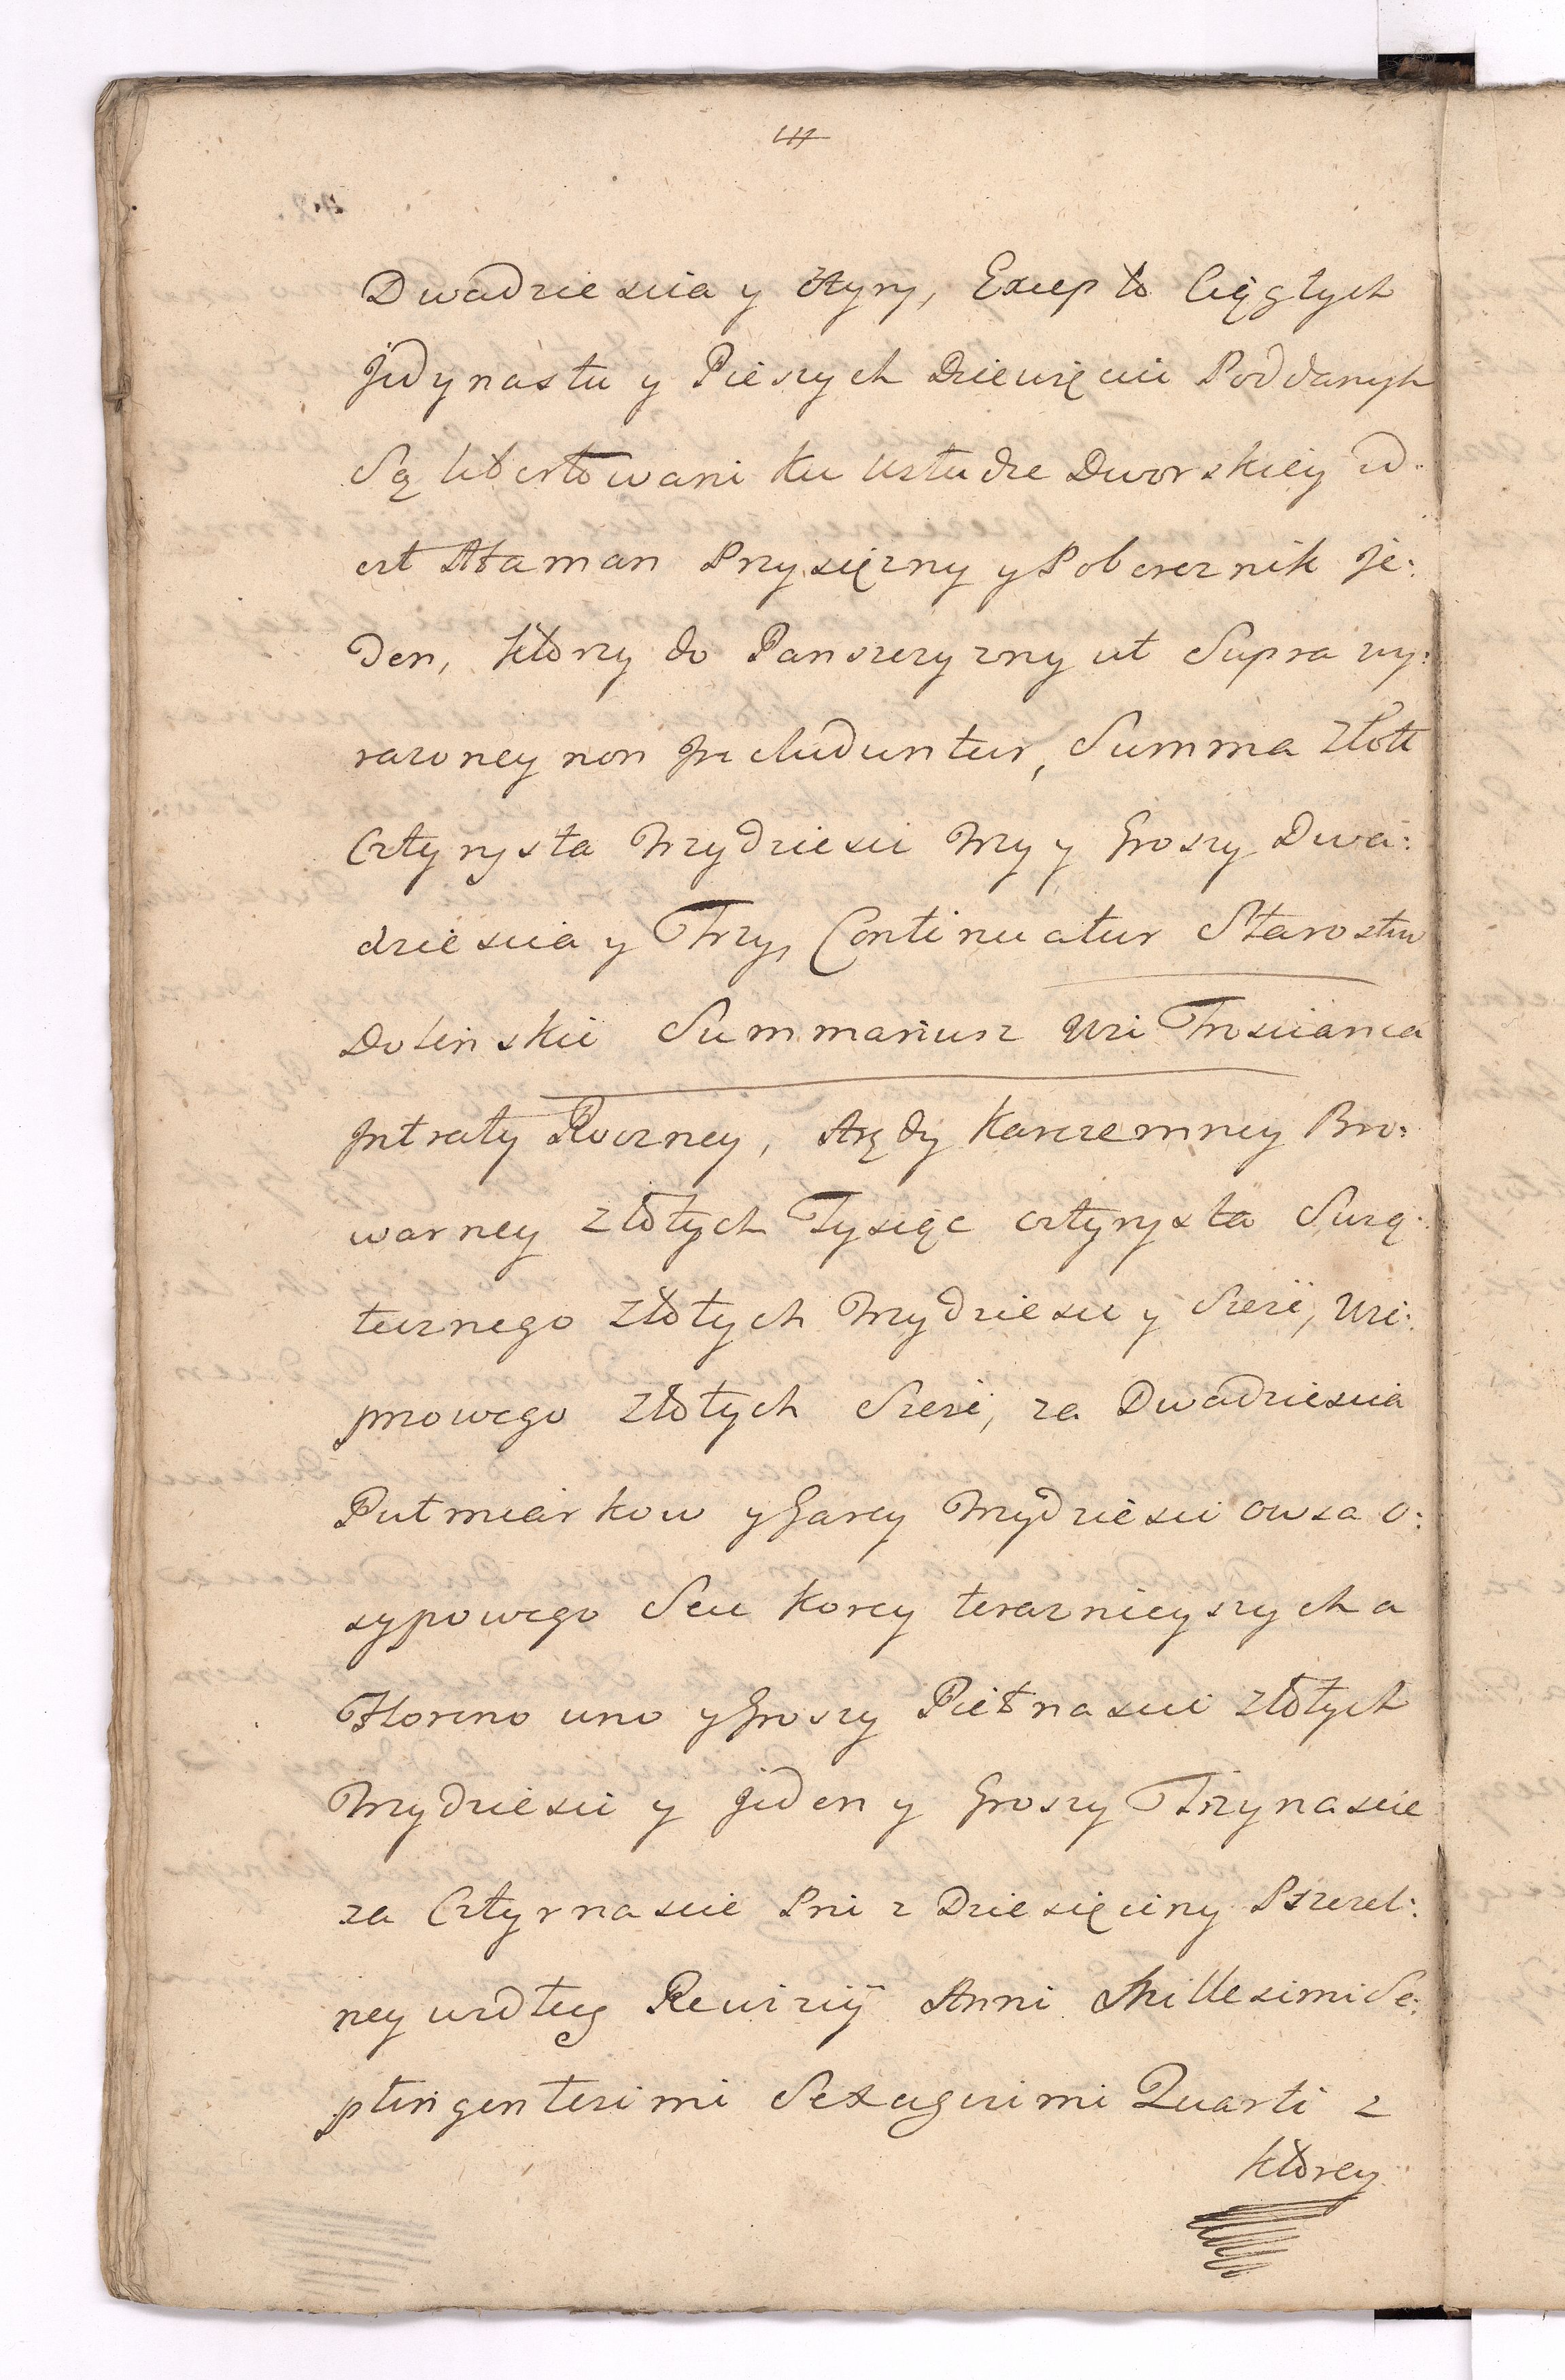 Dwadziescia y cztyry, Excepto Ciągłych
Jedynastu y Pieszych Dziewięciu Poddanych
Są libertowani ku usłudze Dworskiey id
est Ataman Przysięzny y Pobereznik Je:
den, którzy do Panszczyzny ut Supra wy:
razoney non Includuntur, Summa złote
Cztyrysta Trzydziesci Trzy y Groszy Dwa:
dziescia y Trzy, Continuatur Starostw
Dolinskie Summariusz Wsi Trosciańca
Intraty Roczney, Arędy Karczemney Bro:
warney złotych Tysiąc cztyrysta Surę:
tucznego złotych Trzydziesci y Szesć, Wie:
przowego złotych Szesć, za Dwadziescia
Pułmiarkow y Garcy Trzydziesci owsa o:
sypowego Seu Korcy teraznieyszych a
Floreno uno y Groszy Piętnascie złotych
Trzydziesci y Jeden y Groszy Trzynascie
za Cztyrnascie Pni z Dziesięciny Pszczel:
ney według Rewizyi Anni Millesimi Se:
ptingentesimi Sexagesimi Quarti z
którey